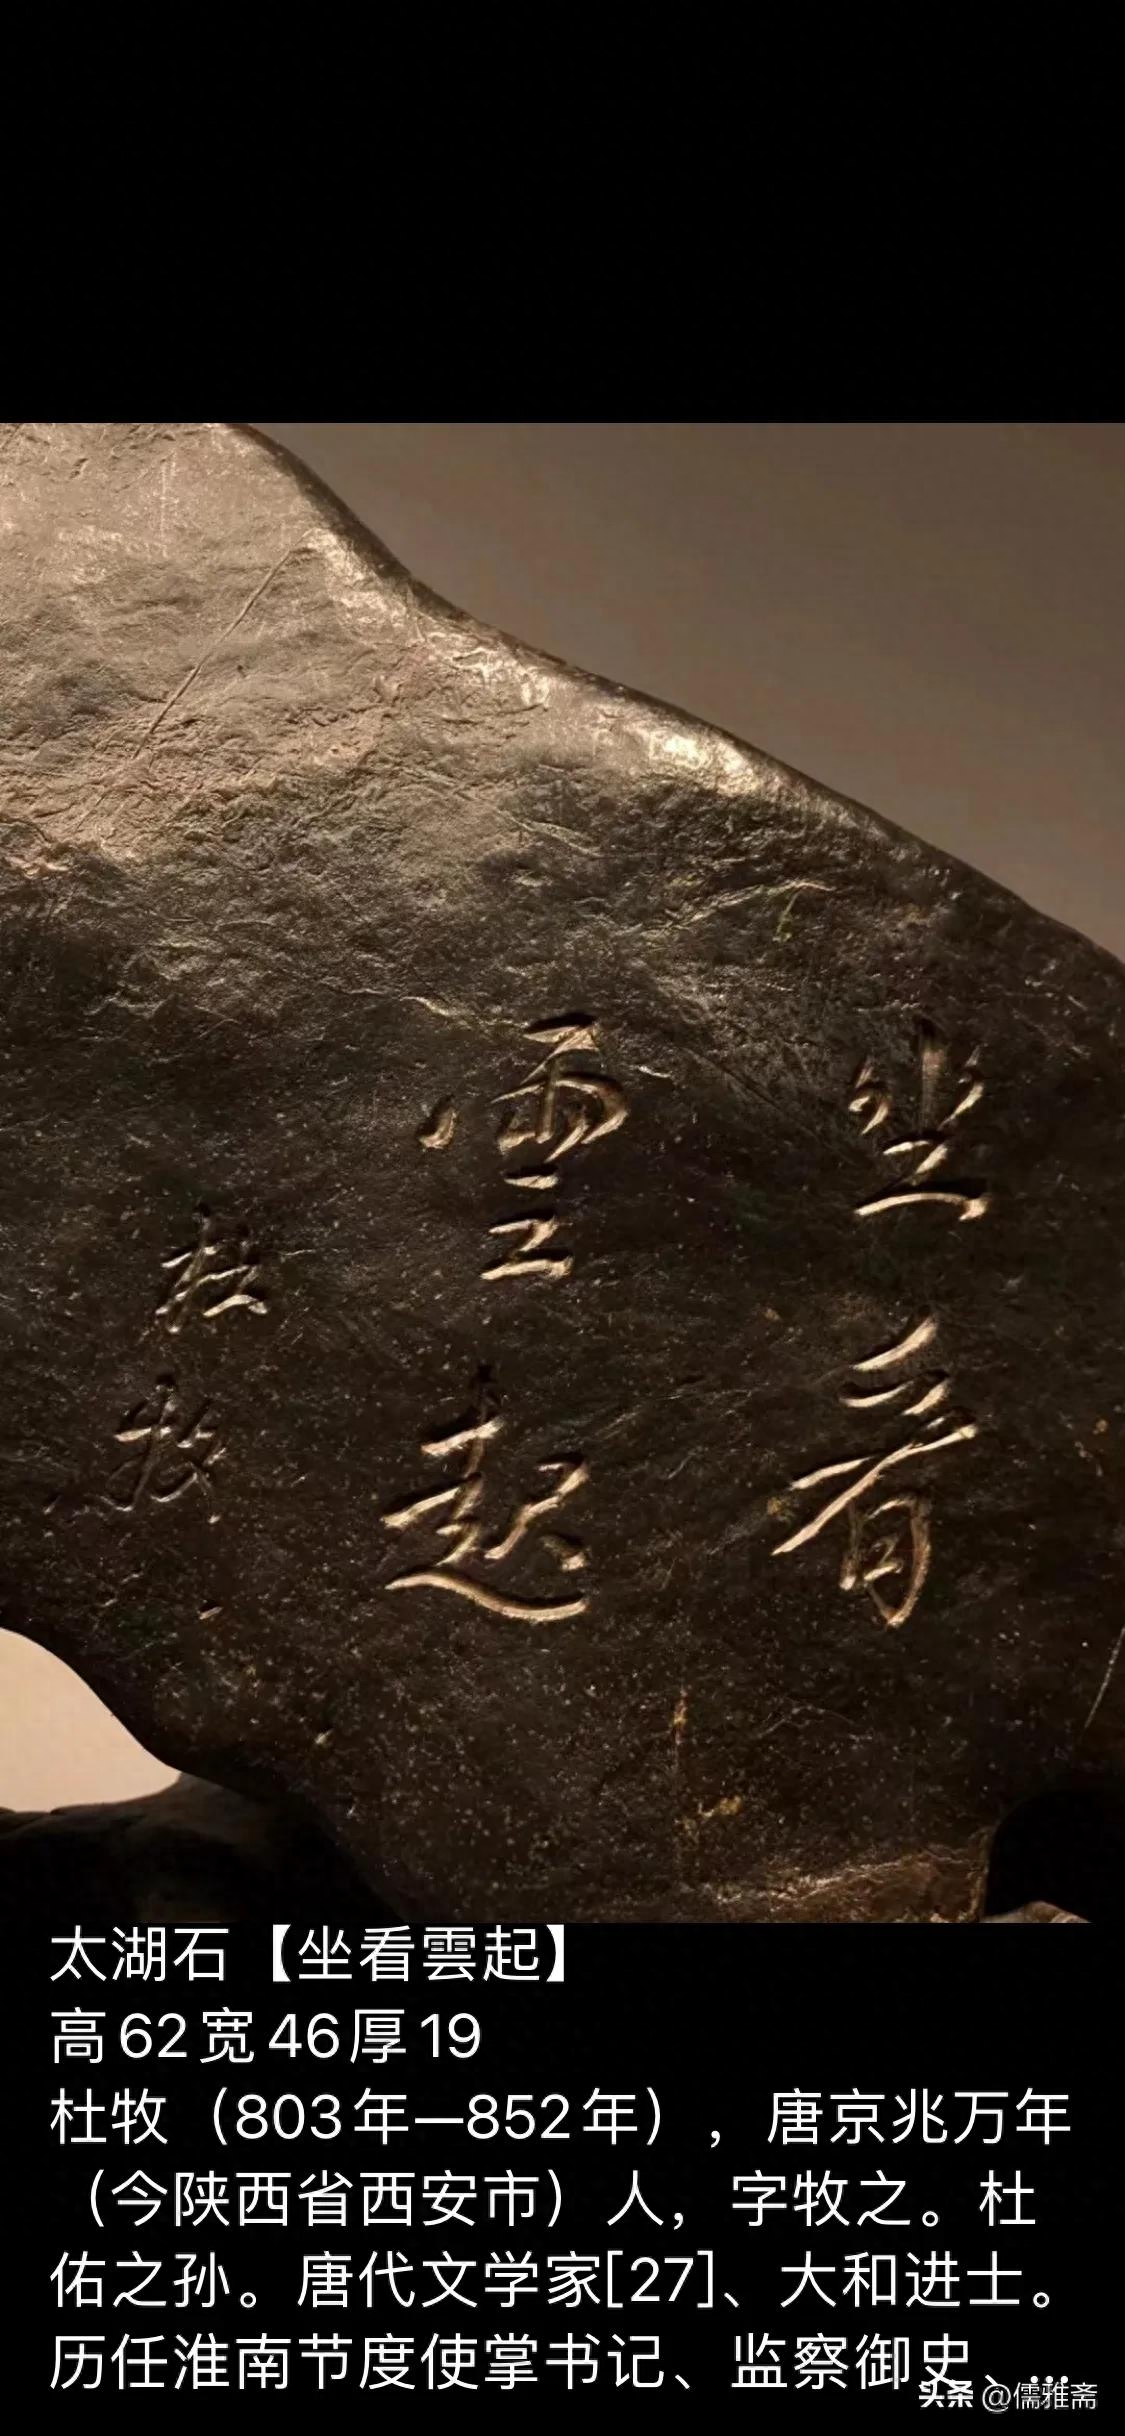 坐看
雲起
杜牧
太湖石【坐看雲起】
高62宽46厚19
杜牧（803年—852年），唐京兆万年
（今陕西省西安市）人，字牧之。杜
佑之孙。唐代文学家[27]、大和进士。
历任淮南节度使掌书记、监察御史、...
头条 @儒雅斋